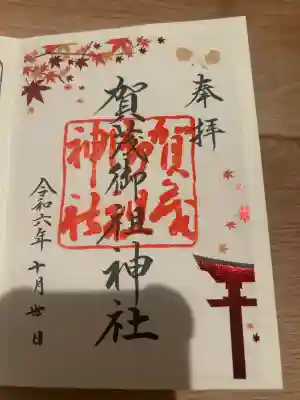 奉拝
賀茂御祖神社
賀茂
御祖
神社
令和六年十月卅日